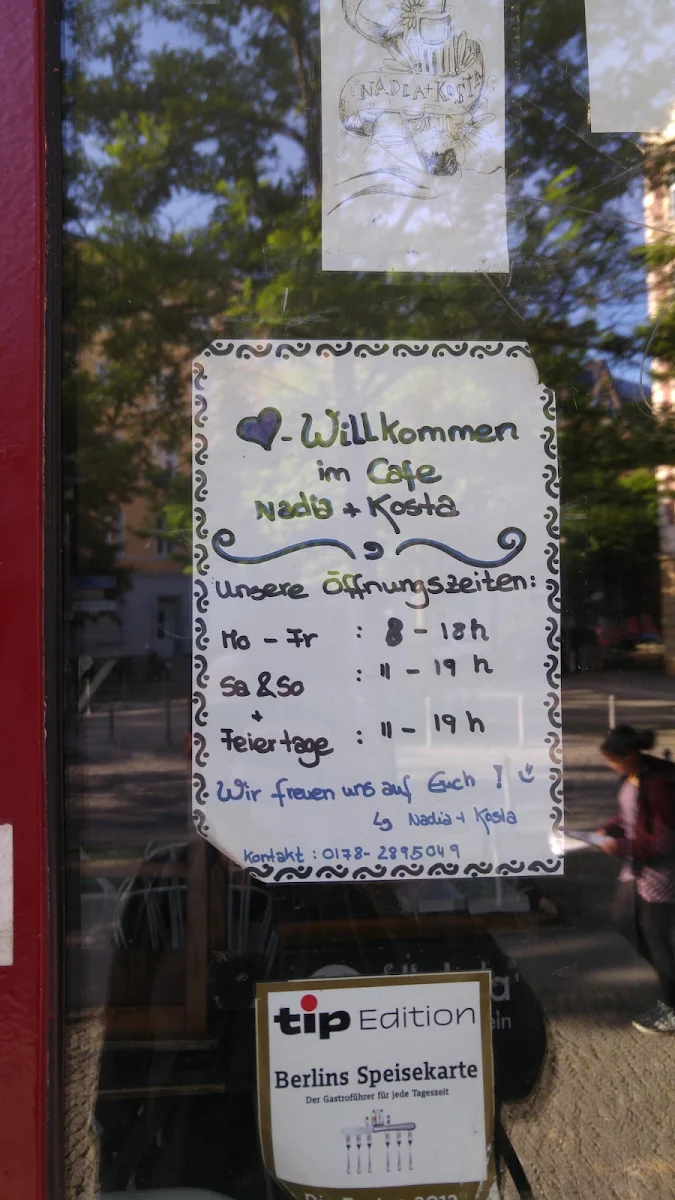 NADIA+KOSTA
♥-Willkommen
im Cafe
Nadia + Kosta
Unsere Öffnungszeiten:
Mo - Fr : 8 - 18h
Sa & So : 11 - 19 h
+
Feiertage : 11 - 19 h
Wir freuen uns auf Euch !
↳ Nadia + Kosta
Kontakt : 0178- 2895049
tip Edition
Berlins Speisekarte
Der Gastroführer für jede Tageszeit